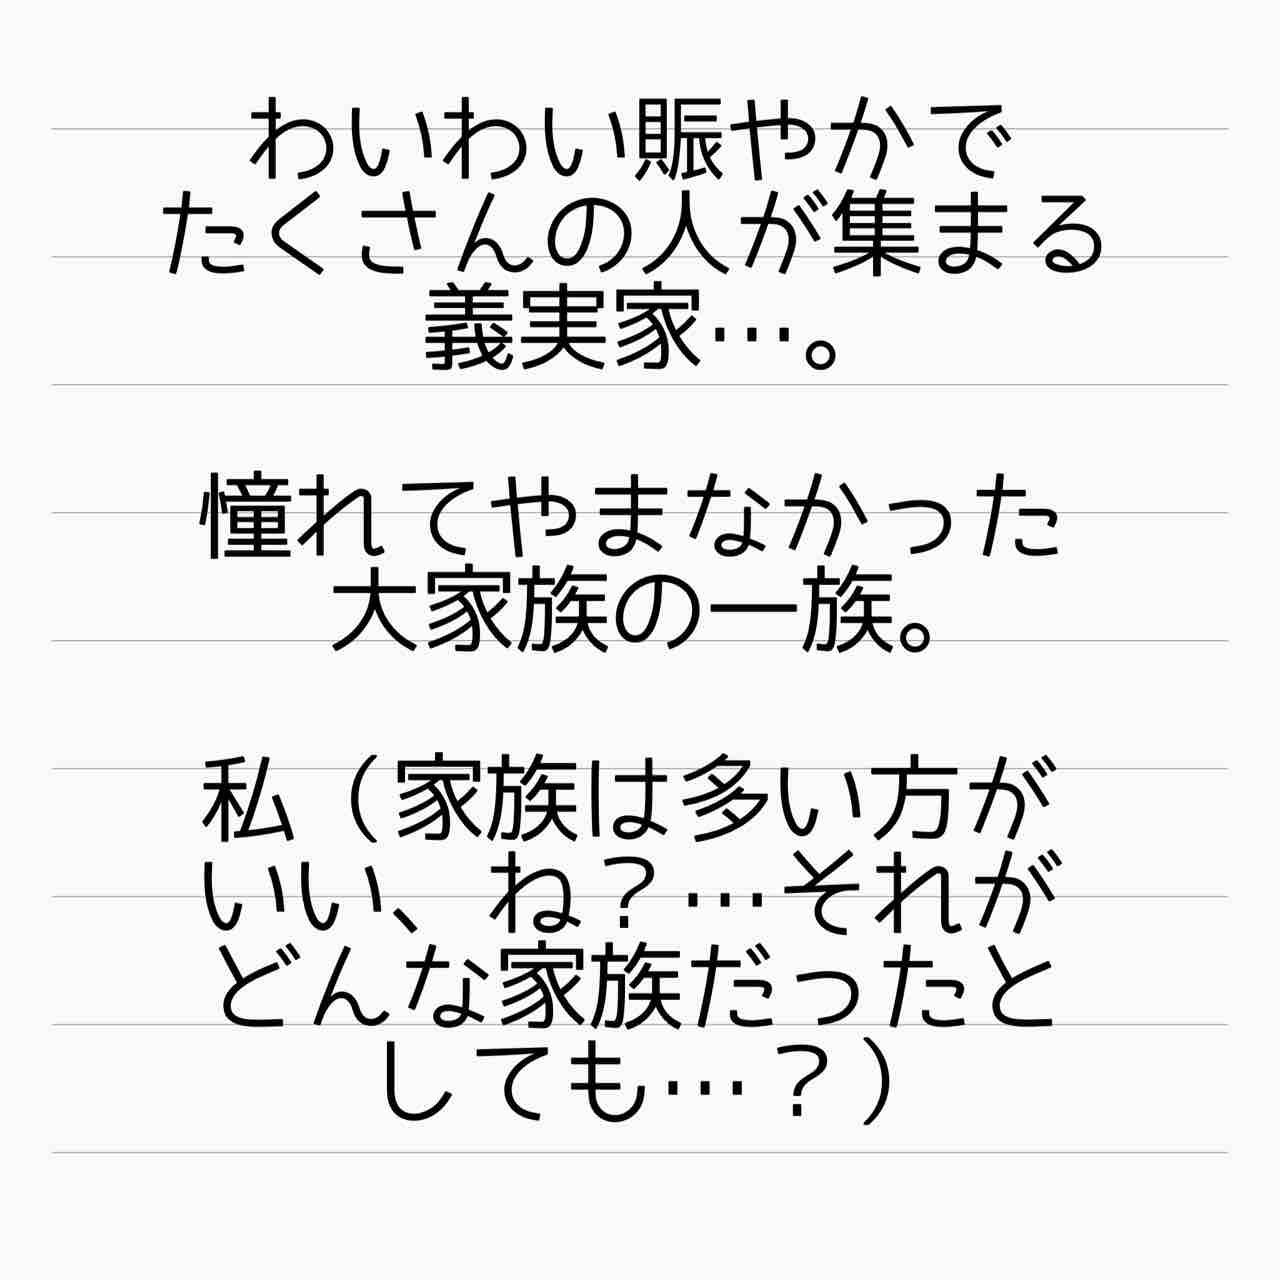 わいわい賑やかで
たくさんの人が集まる
義実家…。
憧れてやまなかった
大家族の一族。
私（家族は多い方が
いい、ね？…それが
どんな家族だったと
しても…？）